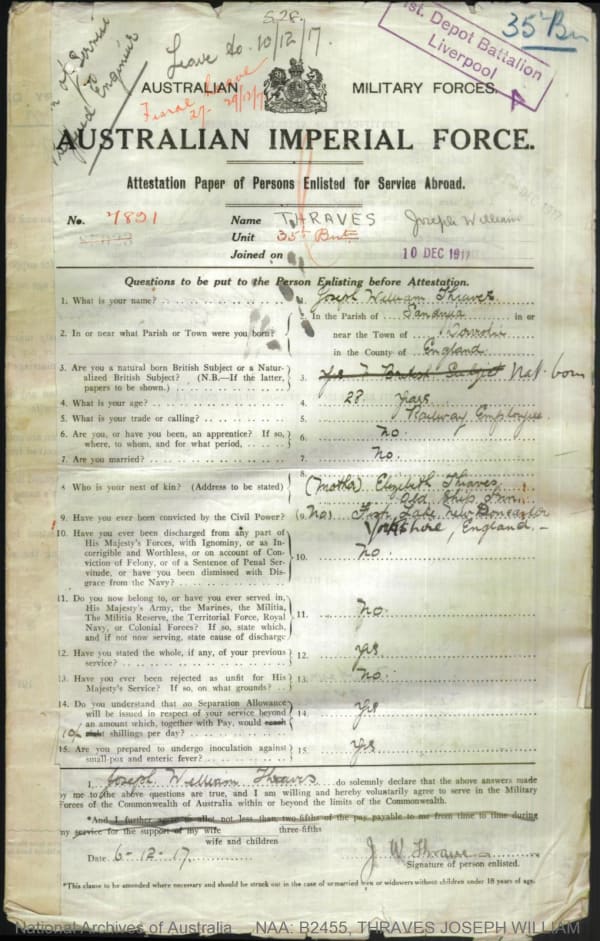 S28.
Leave to 10/12/17.
of Service
Engineer
1st. Depot Battalion
Liverpool
35 Bn
AUSTRALIAN MILITARY FORCES.
Final Leave
AUSTRALIAN IMPERIAL FORCE.
Attestation Paper of Persons Enlisted for Service Abroad.
No. 7831 Name THRAVES Joseph William
Unit 35 Btn
Joined on 10 DEC 1917
Questions to be put to the Person Enlisting before Attestation.
1. What is your name? 1. Joseph William Thraves
2. In or near what Parish or Town were you born? 2. In the Parish of in or
near the Town of
in the County of England
3. Are you a natural born British Subject or a Natur-
alized British Subject? (N.B.—If the latter,
papers to be shown.) 3. British Subject Nat. born
4. What is your age? 4. 28 years
5. What is your trade or calling? 5. Railway Employee
6. Are you, or have you been, an apprentice? If so,
where, to whom, and for what period, 6. no.
7. Are you married? 7. No.
8. Who is your next of kin? (Address to be stated) 8. (Mother) Elizabeth Thraves
Old Ship Inn
9. Have you ever been convicted by the Civil Power? 9. No) Fish Lake, near Doncaster
Yorkshire, England.
10. Have you ever been discharged from any part of
His Majesty's Forces, with Ignominy, or as In-
corrigible and Worthless, or on account of Con-
viction of Felony, or of a Sentence of Penal Ser-
vitude, or have you been dismissed with Dis-
grace from the Navy? 10. no.
11. Do you now belong to, or have you ever served in,
His Majesty's Army, the Marines, the Militia,
The Militia Reserve, the Territorial Force, Royal
Navy, or Colonial Forces? If so, state which,
and if not now serving, state cause of discharge 11. no.
12. Have you stated the whole, if any, of your previous
service? 12. yes
13. Have you ever been rejected as unfit for His
Majesty's Service? If so, on what grounds? 13. no.
14. Do you understand that no Separation Allowance
will be issued in respect of your service beyond
an amount which, together with Pay, would reach
10/- eight shillings per day? 14. Yes
15. Are you prepared to undergo inoculation against
small-pox and enteric fever? 15. Yes
I, Joseph William Thraves do solemnly declare that the above answers made
by me to the above questions are true, and I am willing and hereby voluntarily agree to serve in the Military
Forces of the Commonwealth of Australia within or beyond the limits of the Commonwealth.
*And I further agree to allot not less than two-fifths of the pay payable to me from time to time during
three-fifths
my service for the support of my wife
wife and children
Date 6-12-17. J. W. Thraves
Signature of person enlisted.
*This clause to be amended where necessary and should be struck out in the case of unmarried men or widowers without children under 18 years of age.
National Archives of Australia NAA: B2455, THRAVES JOSEPH WILLIAM